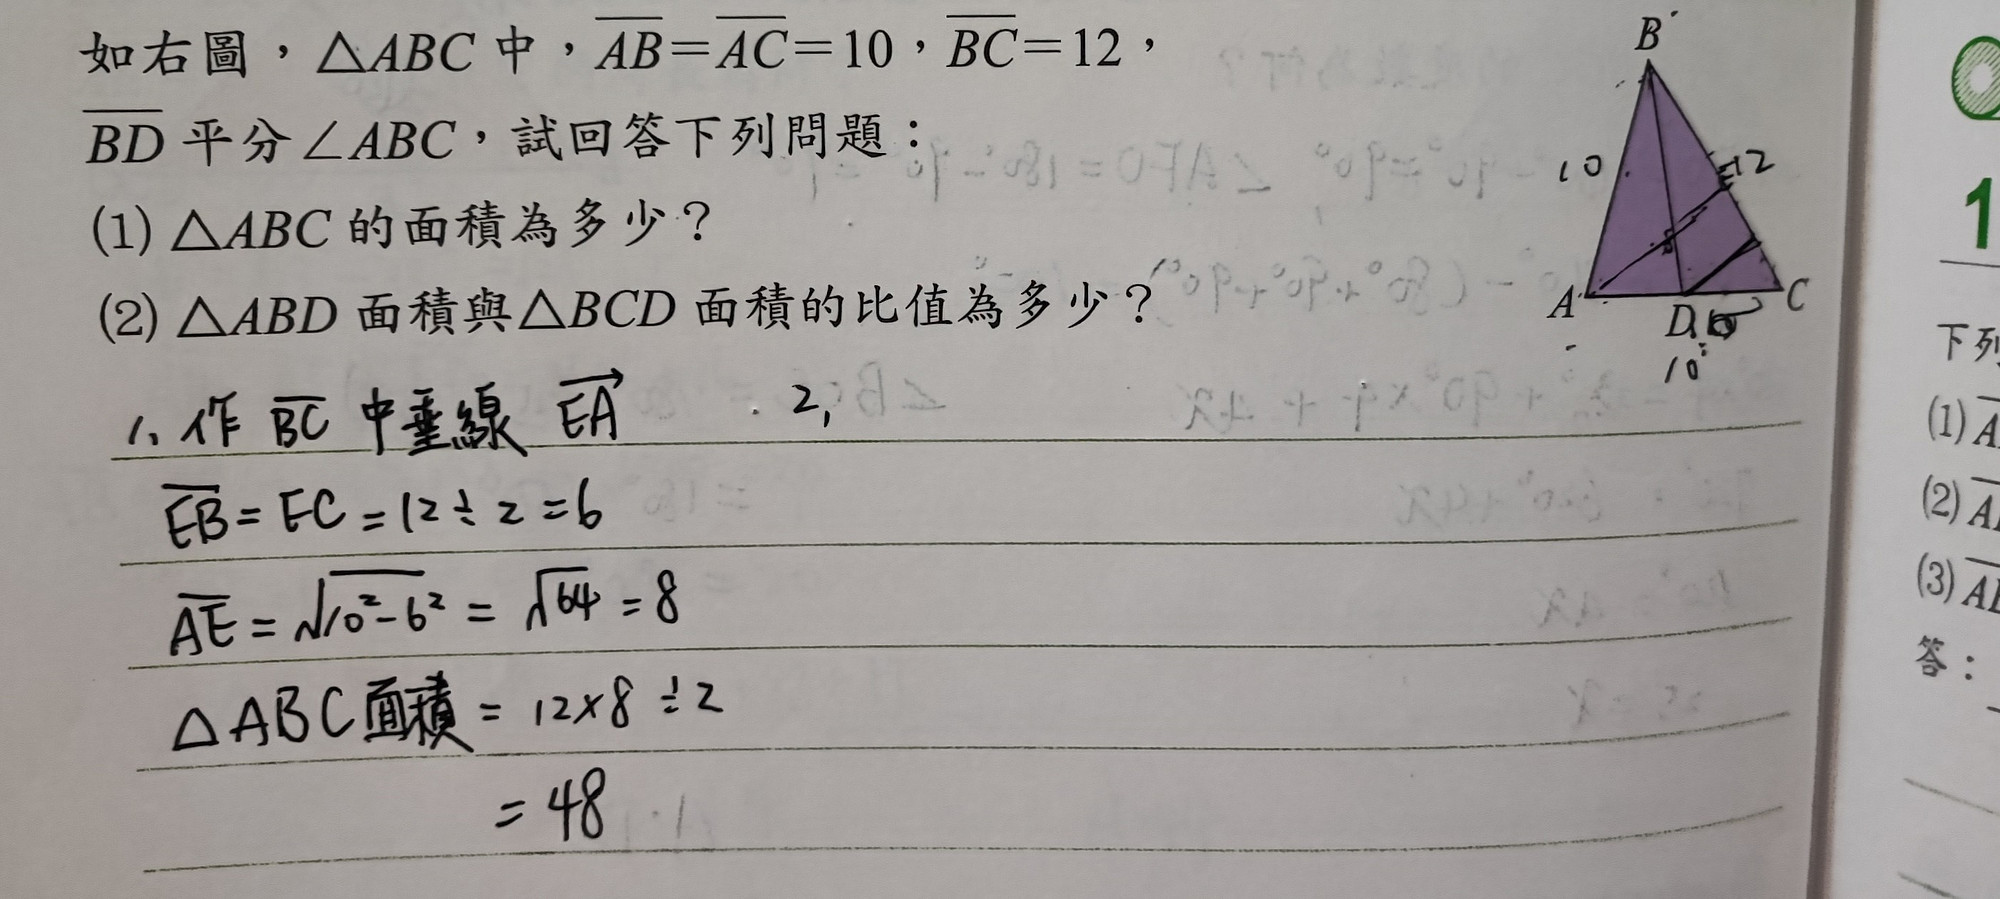 如右圖，△ABC 中，AB=AC=10，BC=12，
BD 平分∠ABC，試回答下列問題：
(1) △ABC 的面積為多少？
(2) △ABD 面積與△BCD 面積的比值為多少？
B
10
12
A
D
C
10
1. 作 BC 中垂線 EA
2.
EB = EC = 12 ÷ 2 = 6
AE = √10²-6² = √64 = 8
△ABC面積 = 12×8 ÷ 2
= 48
1
下列
(1) A
(2) A
(3) A
答：